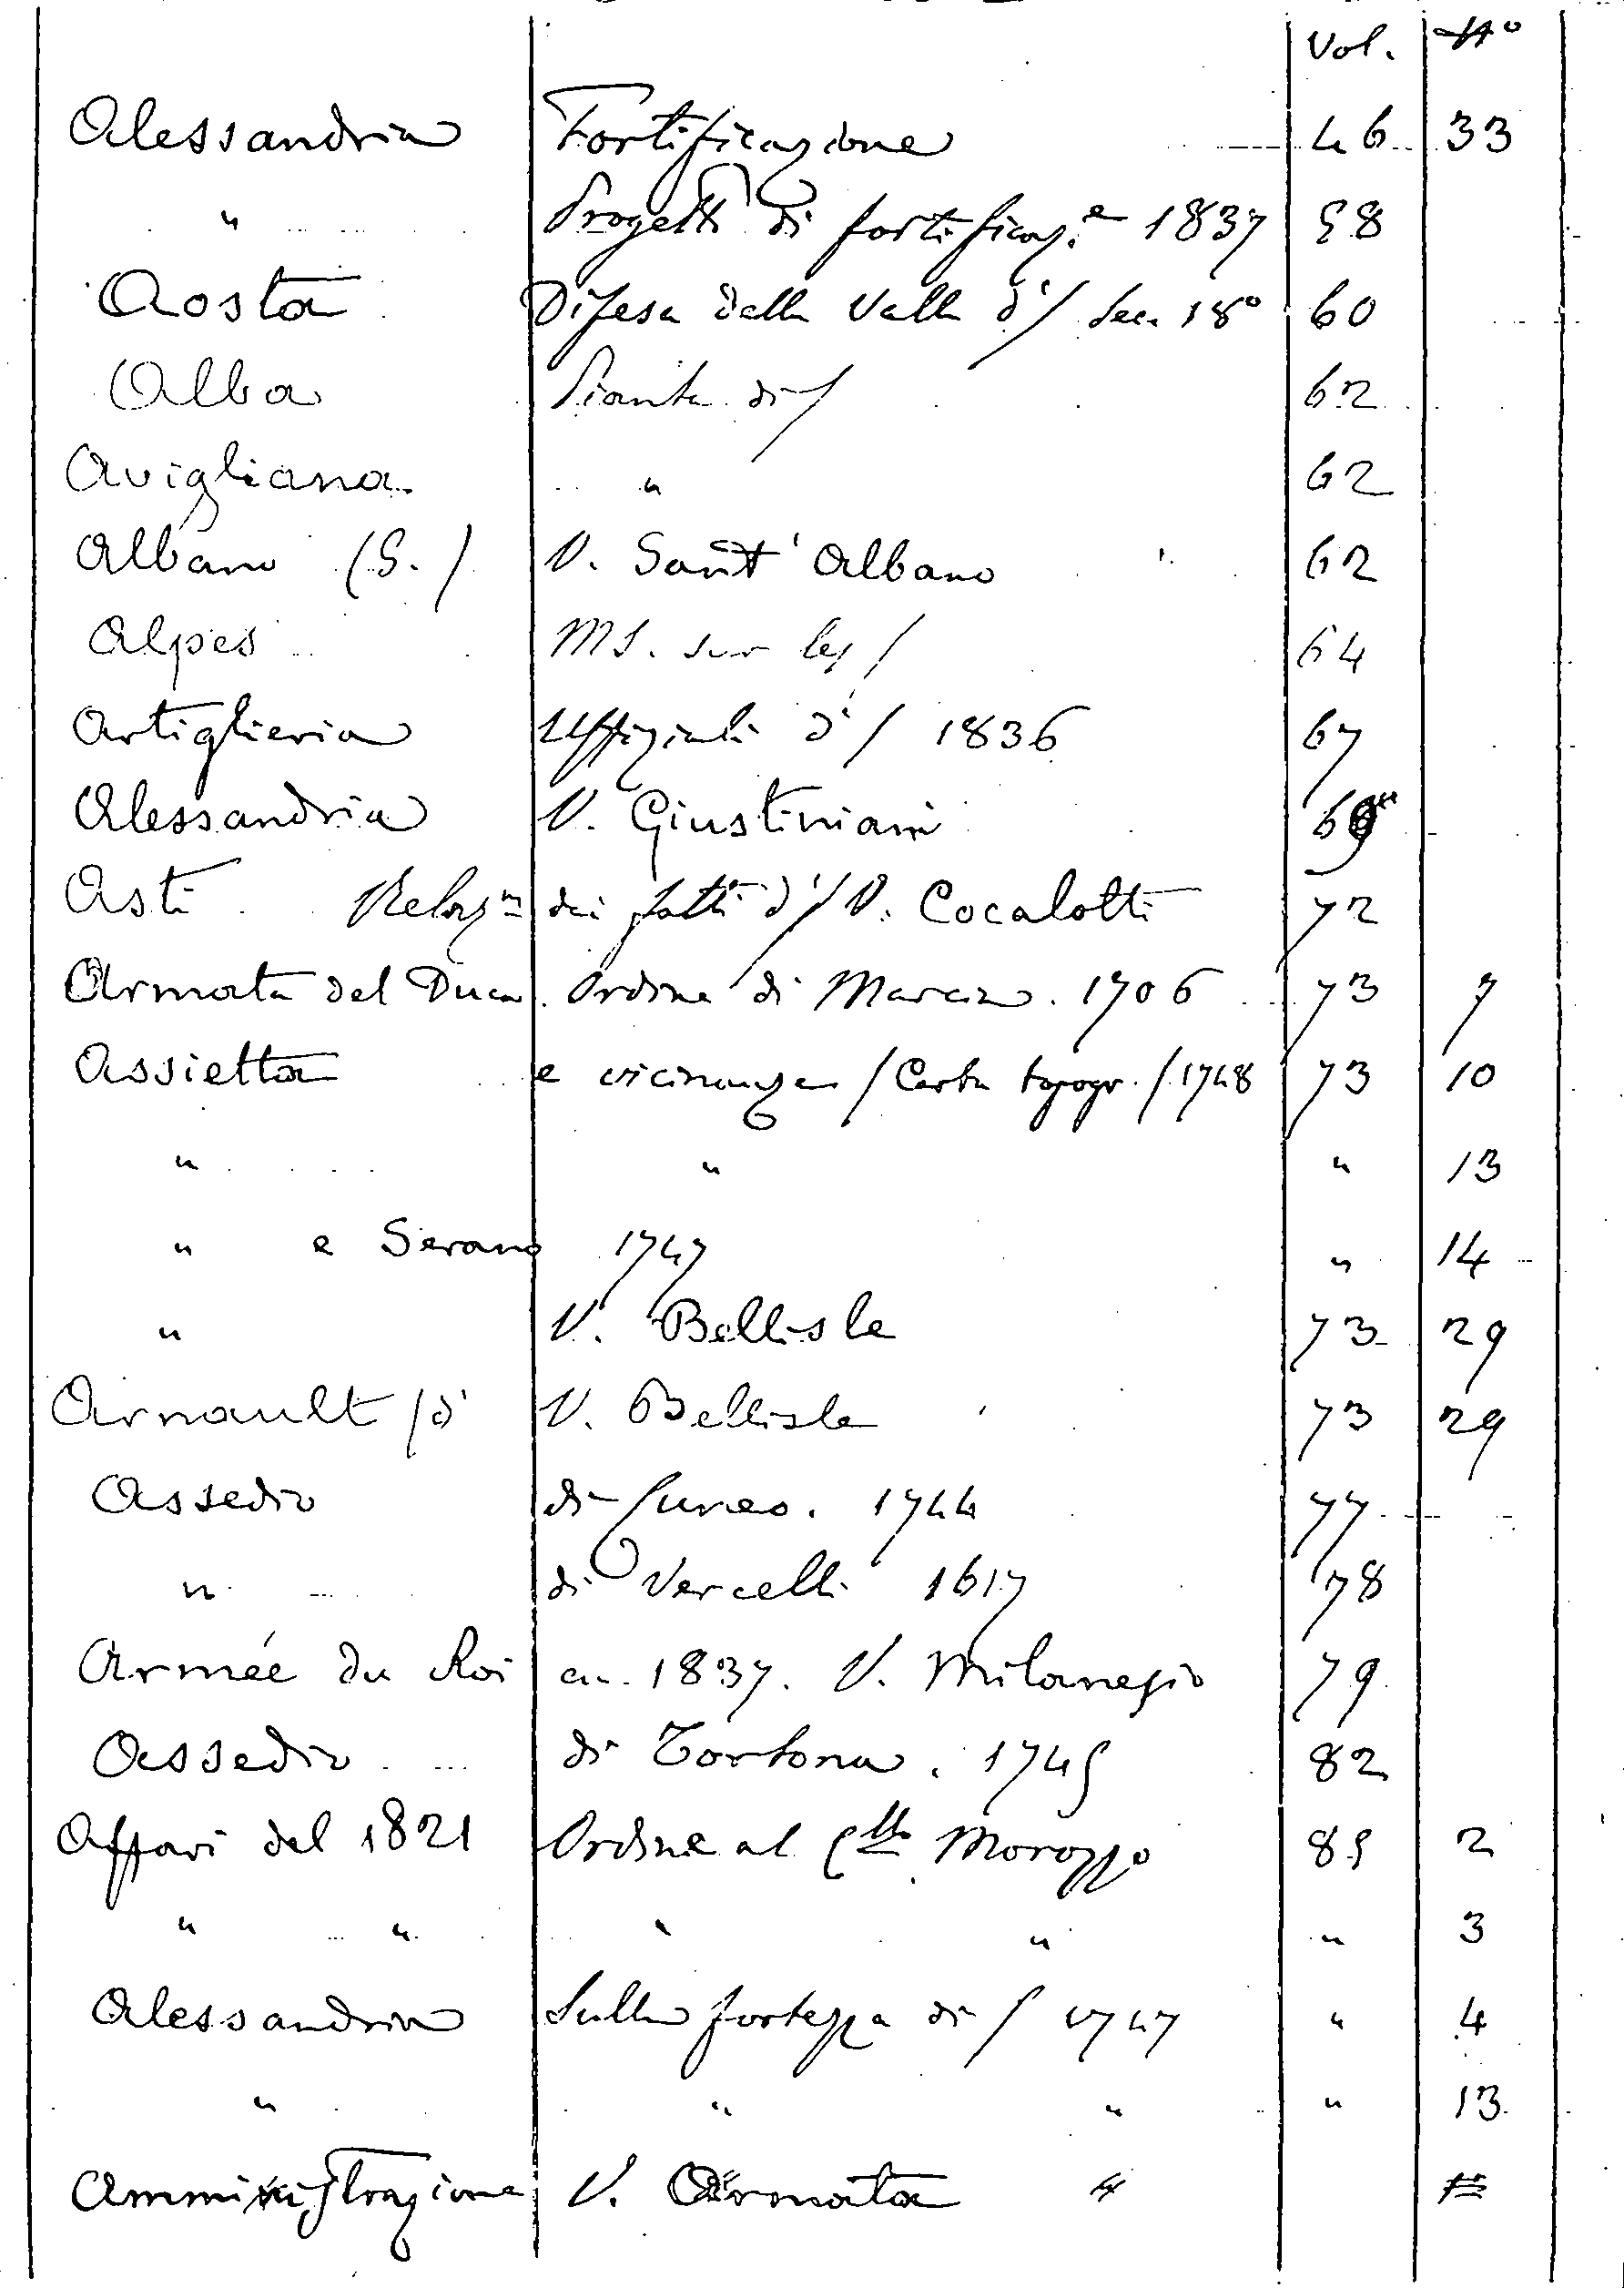 Vol. Nº
Alessandria Fortificazione 46 33
" Progetti di fortificaz.e 1837 58
Aosta Difesa della Valle d'/ Sec. 18º 60
Alba Pianta di / 62
Avigliana " 62
Albano (S.) V. Sant' Albano 62
Alpes MS. sur les / 64
Artiglieria Uffiziali d'/ 1836 67
Alessandria V. Giustiniani
Asti Relazne dei fatti d'/ V. Cocalotti 72
Armata del Duca. Ordine di Marcin. 1706 73 7
Assietta e vicinanze / Carta topogr. / 1748 73 10
" " " 13
" e Serano 1747 " 14
" V. Bellisle 73 29
Arnault / d' V. Bellisle 73 29
Assedio di Cuneo. 1744 77
" di Vercelli 1617 78
Armée du Roi en 1837. V. Milanesio 79
Assedio di Tortona. 1745 82
Affari del 1821 Ordine al Morozzo 85 2
" " " " 3
Alessandria Sulla fortezza di / 1747 " 4
" " " " 13
Amministrazione V. Armata